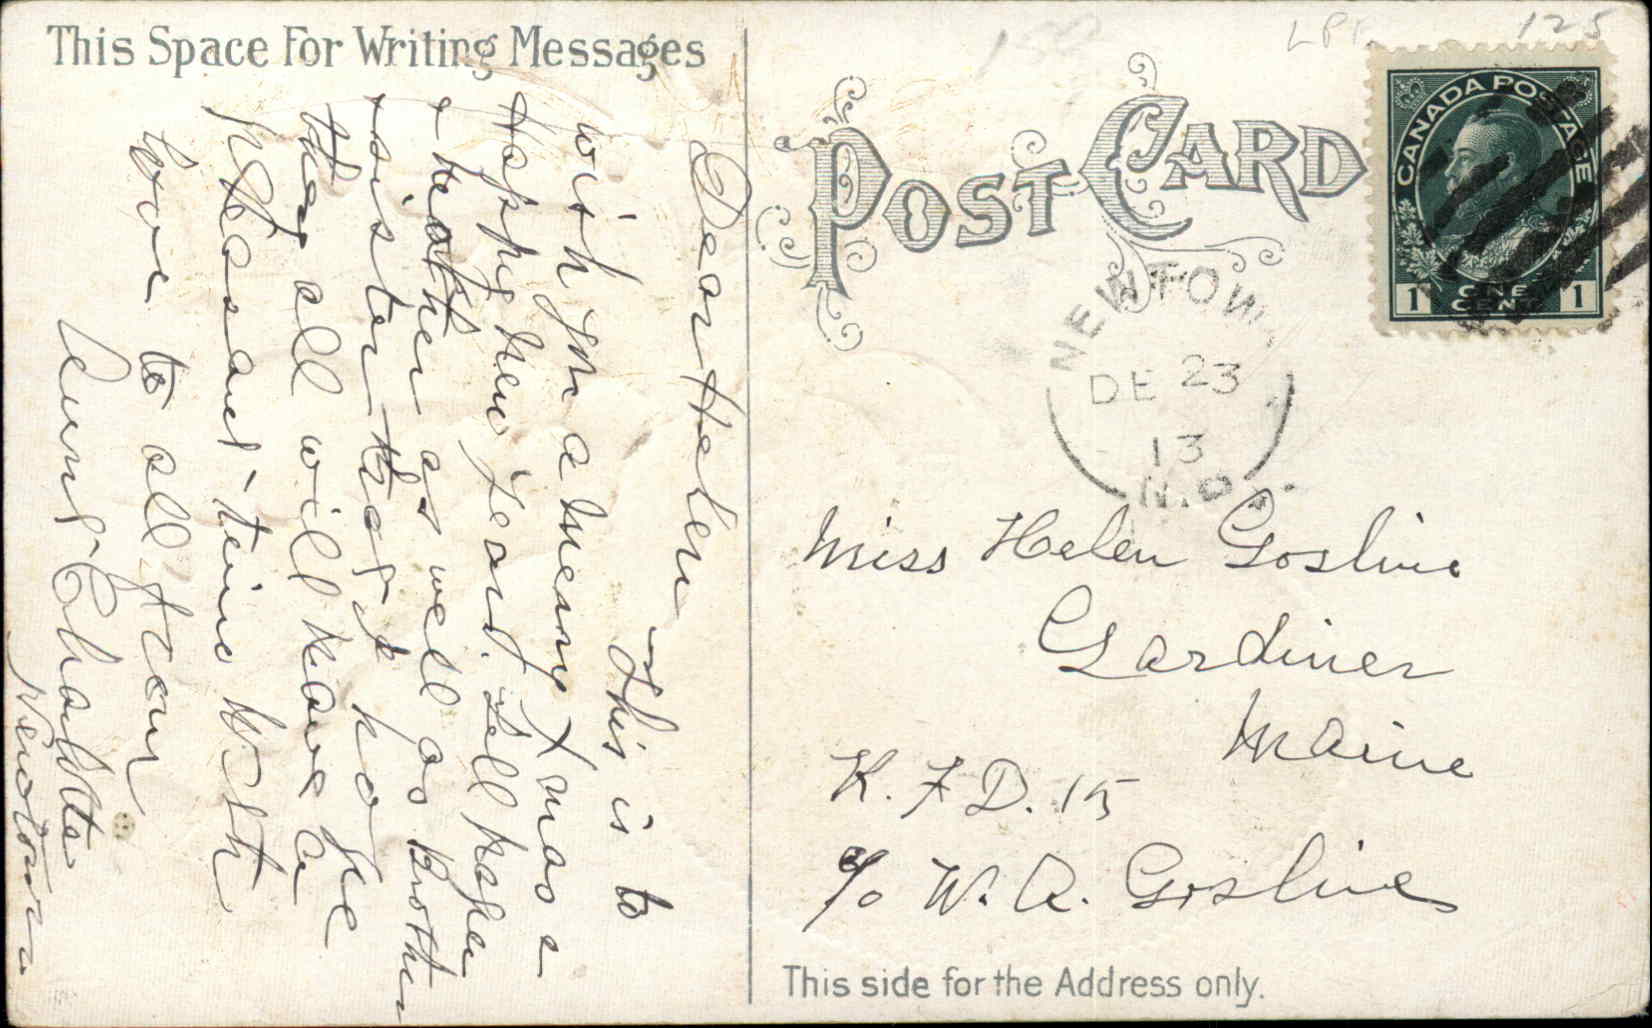 This Space For Writing Messages
Dear Helen
This is to
wish you a Merry Xmas &
Happy New Year. Tell
& Mother as well as Brother
& sister that I hope
they all will have a
Pleasant time With
love to all from
Aunt Charlotte
Newtown
LPF 125
POST CARD
CANADA POSTAGE
1 ONE CENT 1
NEWTOWN
DE 23
13
N.B.
Miss Helen Gosline
Gardiner
Maine
R. F D. 15
c/o W. A. Gosline
This side for the Address only.